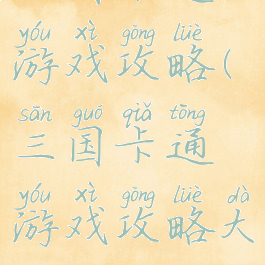 yóu xì gōng lüè
游戏攻略(
sān guó qiǎ tōng
三国卡通
yóu xì gōng lüè dà
游戏攻略大